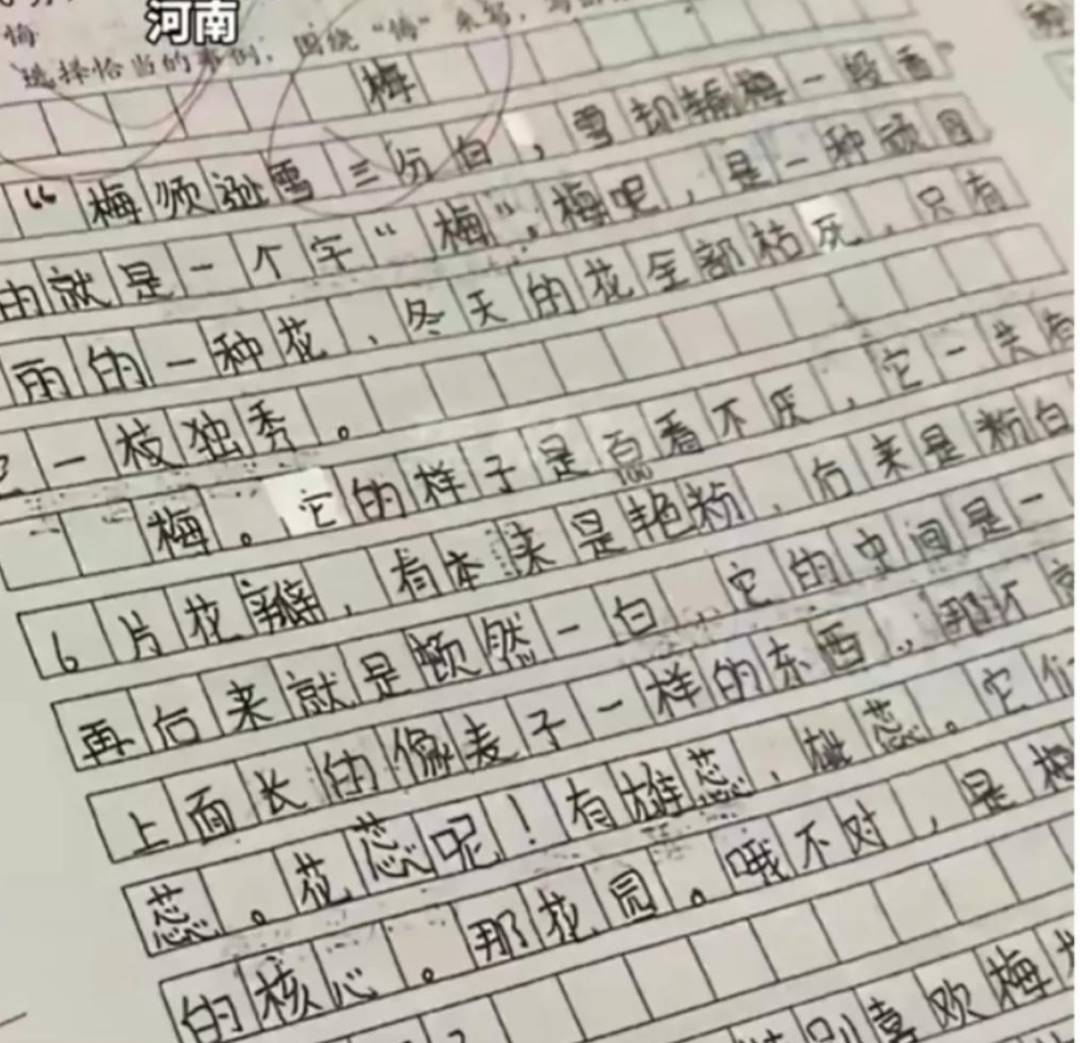 河南
选择恰当的事例，围绕“悔”来写，
梅
“梅须逊雪三分白，雪却输梅一段香”
的就是一个字“梅”。梅呢，是一种顽固
丽的一种花，冬天的花全部枯死，只有
一枝独秀。
梅。它的样子是百看不厌，它一共有
6片花瓣，有本来是艳粉，后来是粉白
再后来就是顿然一白，它的中间是一
上面长的像麦子一样的东西，那不
蕊。花蕊呢！有雄蕊、雌蕊。它们
的核心。那花园。哦不对，是
喜欢梅